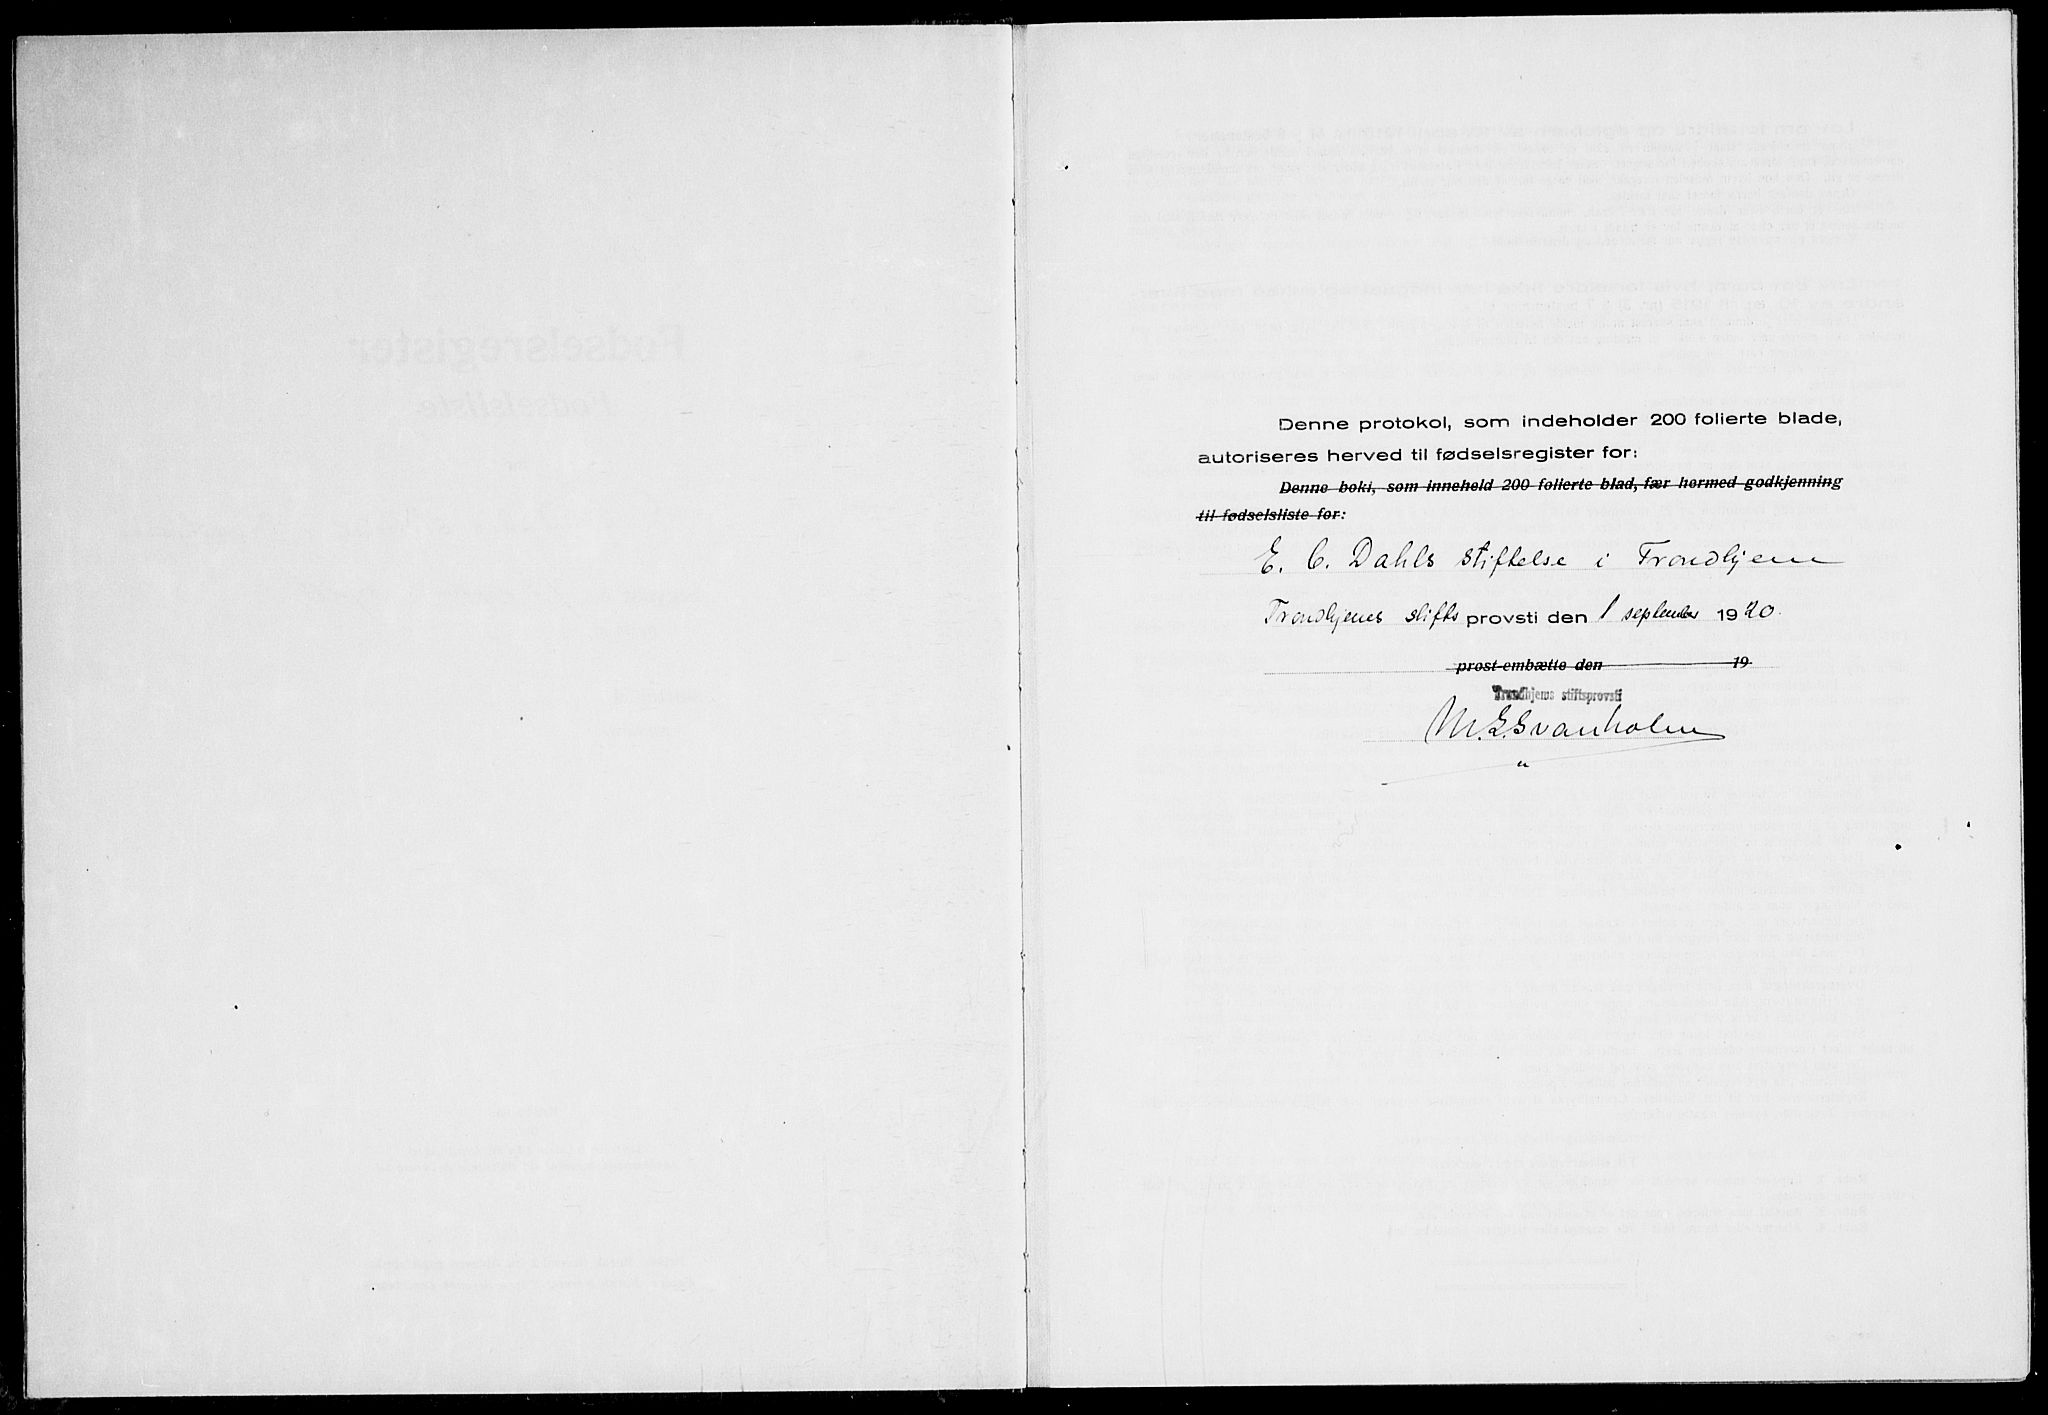 Denne protokol, som indeholder 200 folierte blade,
autoriseres herved til fødselsregister for:
Denne boki, som inneheld 200 folierte blad, fær hermed godkjenning
til fødselsliste for:
E. C. Dahls stiftelse i Trondhjem
Trondhjems stifts provsti den 1 september 1920.
prost-embætte den 19
Trondhjems stiftsprovsti
M. E. Svanholm